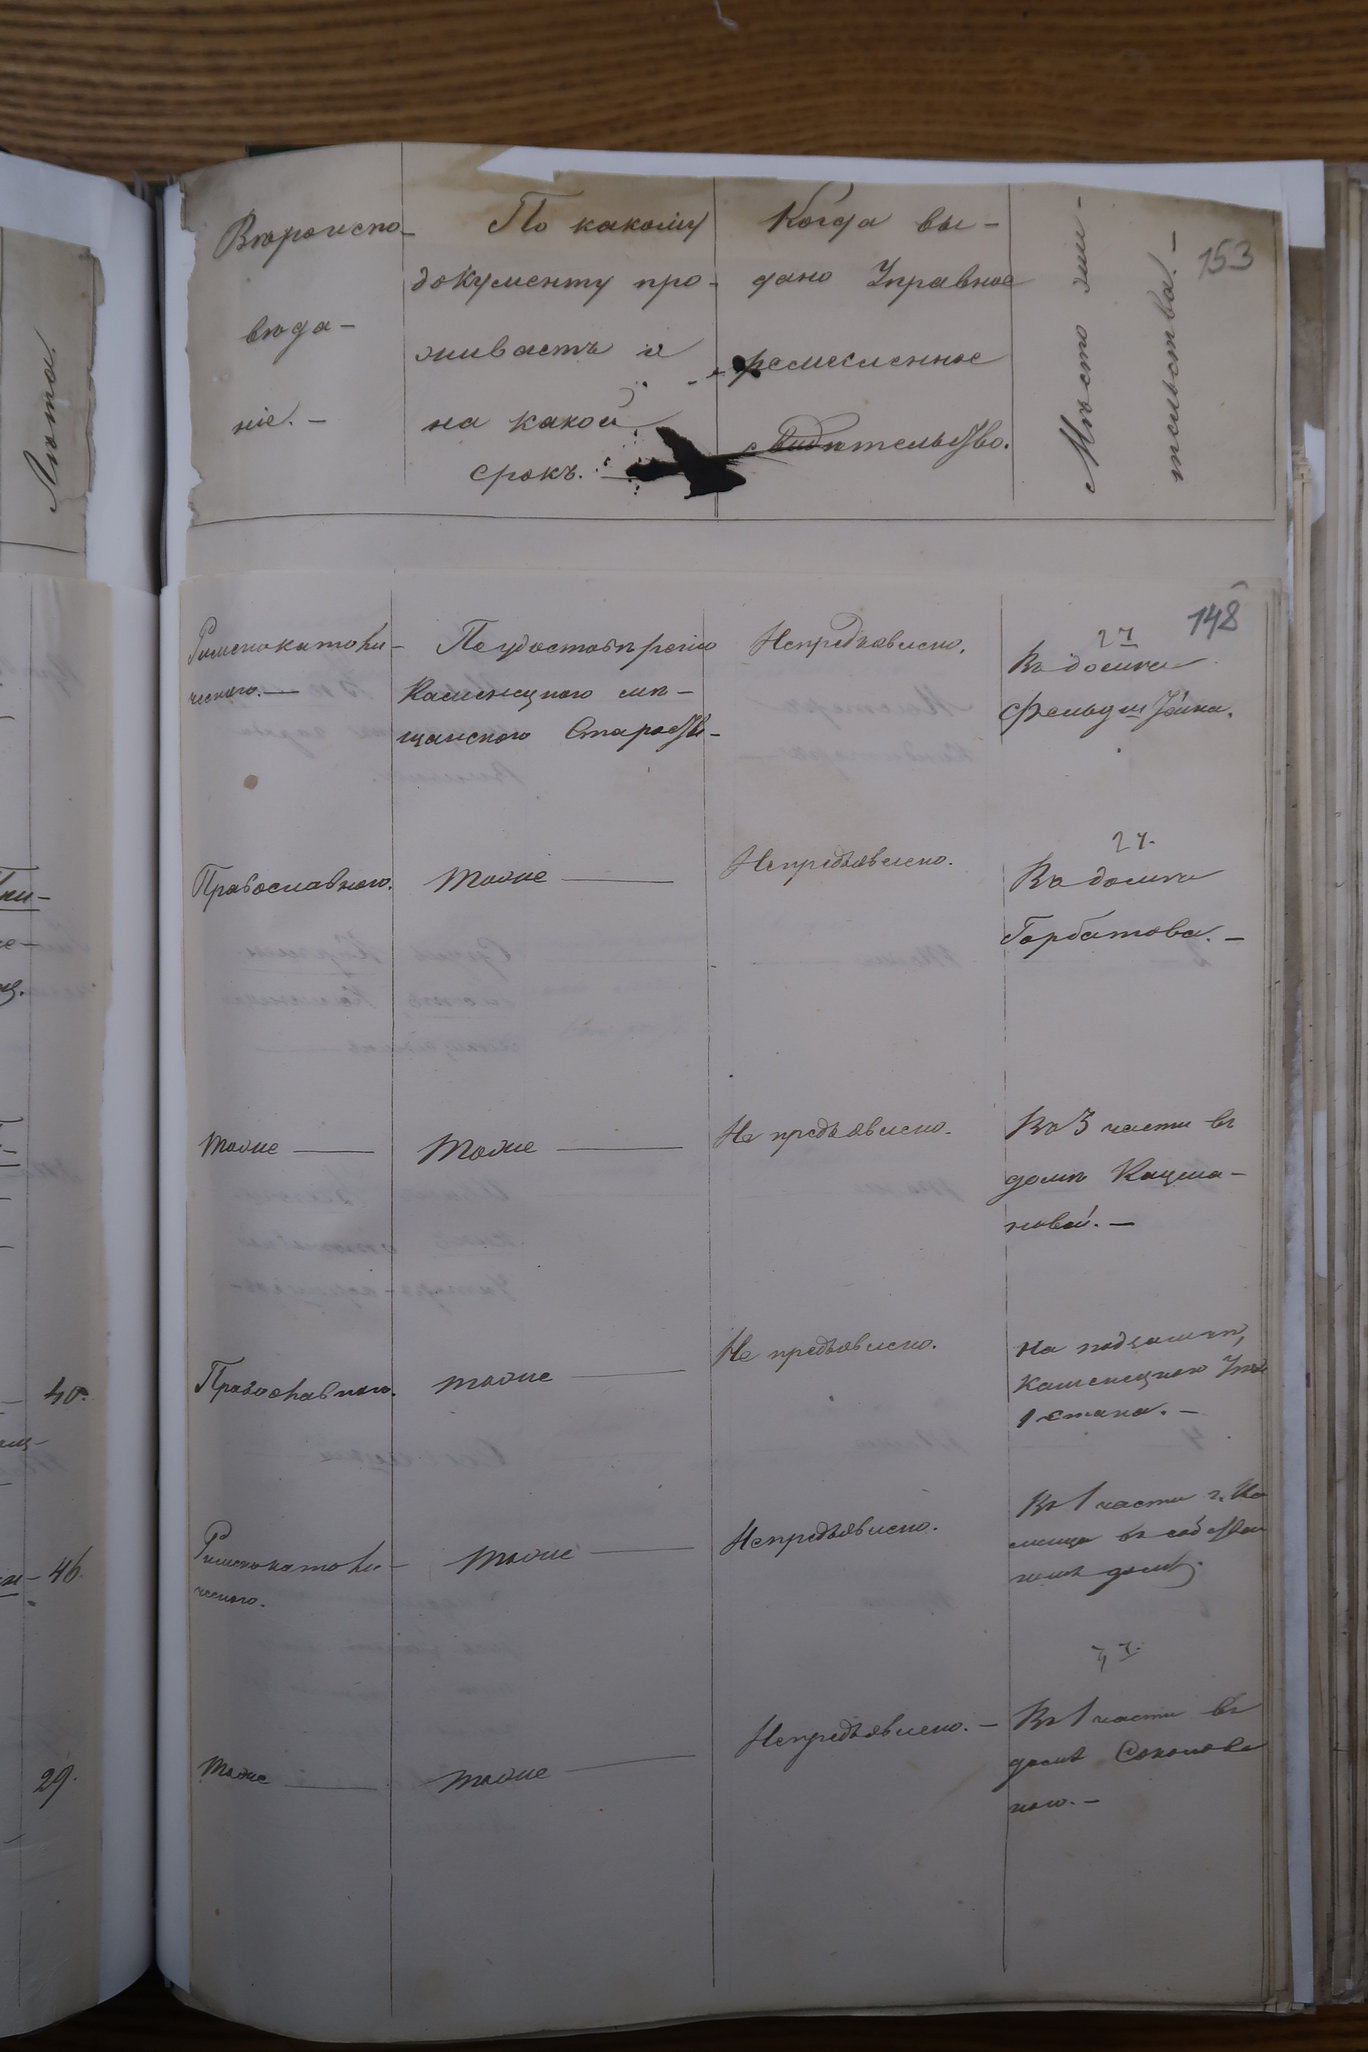 Лѣта.
Вѣроиспо-
вѣда-
ніе. -
По какому
документу про-
живаетъ и
на какой
срокъ. -
Когда вы-
дано Управное
ремесленное
свидѣтельство.
Мѣсто жи-
тельства. -
153
148
Римскокатоли-
ческаго. -
По удостовѣренію
Каменецкаго мѣ-
щанского Старост-
Непредъявлено.
2 ч
Въ домѣ
Православного.
тоже -
Непредъявлено.
2 ч.
Въ домѣ
Горбатова. -
тоже -
тоже -
Не предъявлено.
Въ 3 части въ
домѣ Кацма-
новой. -
40.
Православного.
тоже -
Не предъявлено.
На
Каменецкого
1 Стана. -
46.
Римскокатоли-
ческого.
тоже -
Непредъявлено.
Въ 1 части г. Ка
менца въ собствен
номъ домѣ.
29.
тоже -
тоже -
Непредъявлено. -
Въ 1 части въ
домѣ Соколовс
кого. -